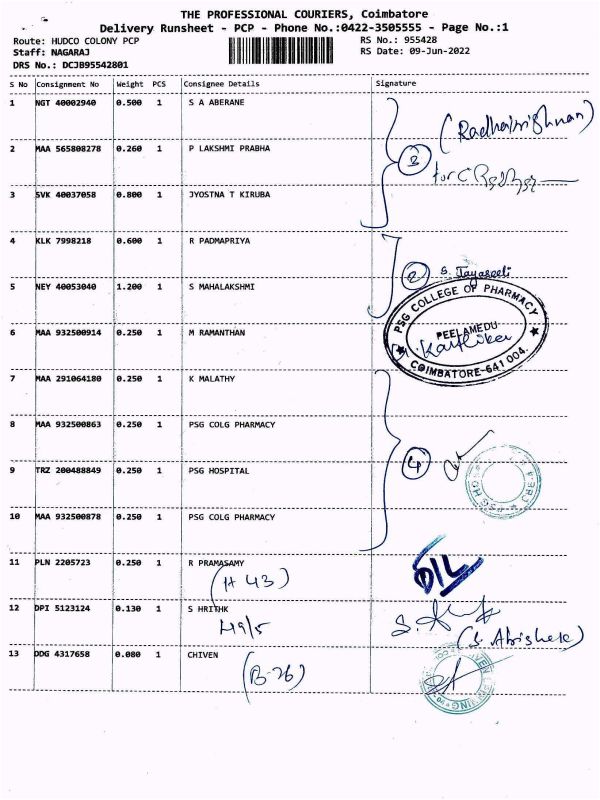 THE PROFESSIONAL COURIERS, Coimbatore
Delivery Runsheet - PCP - Phone No.:0422-3505555 - Page No.:1
Route: HUDCO COLONY PCP RS No.: 955428
Staff: NAGARAJ RS Date: 09-Jun-2022
DRS No.: DCJB95542801
S No Consignment No Weight PCS Consignee Details Signature
1 NGT 40002940 0.500 1 S A ABERANE
(Radhakrishnan)
2 MAA 565808278 0.260 1 P LAKSHMI PRABHA
3
for
3 SVK 40037058 0.800 1 JYOSTNA T KIRUBA
4 KLK 7998218 0.600 1 R PADMAPRIYA
2
5 NEY 40053040 1.200 1 S MAHALAKSHMI
PSG COLLEGE OF PHARMACY
PEELAMEDU
COIMBATORE-641 004.
6 MAA 932500914 0.250 1 M RAMANTHAN
7 MAA 291064180 0.250 1 K MALATHY
8 MAA 932500863 0.250 1 PSG COLG PHARMACY
4
9 TRZ 200488849 0.250 1 PSG HOSPITAL
10 MAA 932500878 0.250 1 PSG COLG PHARMACY
11 PLN 2205723 0.250 1 R PRAMASAMY
(H 43)
D/L
12 DPI 5123124 0.130 1 S HRITHK
H9/5
13 DDG 4317658 0.080 1 CHIVEN
(B-26)